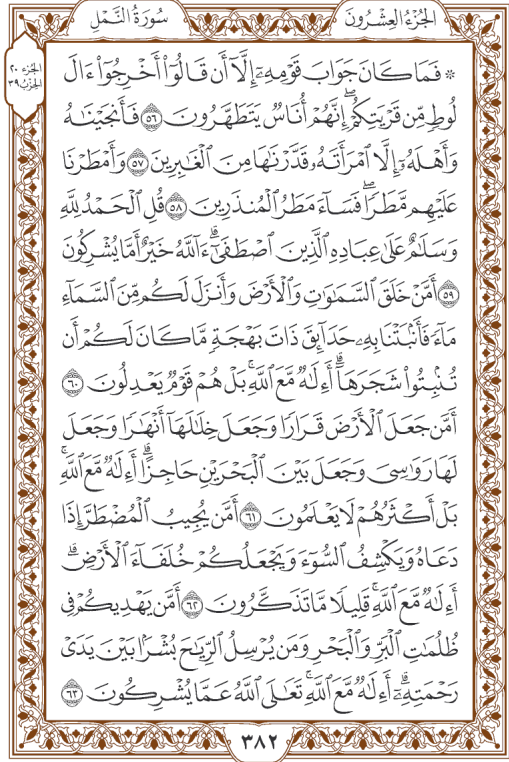 الجُزْءُ العِشْرُونَ
سُورَةُ النَّمْلِ
الجُزء ٢٠
الحِزْب ٣٩
۞ فَمَا كَانَ جَوَابَ قَوْمِهِۦٓ إِلَّآ أَن قَالُوٓا۟ أَخْرِجُوٓا۟ ءَالَ
لُوطٍ مِّن قَرْيَتِكُمْ ۖ إِنَّهُمْ أُنَاسٌ يَتَطَهَّرُونَ ٥٦ فَأَنجَيْنَٰهُ
وَأَهْلَهُۥٓ إِلَّا ٱمْرَأَتَهُۥ قَدَّرْنَٰهَا مِنَ ٱلْغَٰبِرِينَ ٥٧ وَأَمْطَرْنَا
عَلَيْهِم مَّطَرًا ۖ فَسَآءَ مَطَرُ ٱلْمُنذَرِينَ ٥٨ قُلِ ٱلْحَمْدُ لِلَّهِ
وَسَلَٰمٌ عَلَىٰ عِبَادِهِ ٱلَّذِينَ ٱصْطَفَىٰٓ ۗ ءَآللَّهُ خَيْرٌ أَمَّا يُشْرِكُونَ
٥٩ أَمَّنْ خَلَقَ ٱلسَّمَٰوَٰتِ وَٱلْأَرْضَ وَأَنزَلَ لَكُم مِّنَ ٱلسَّمَآءِ
مَآءً فَأَنۢبَتْنَا بِهِۦ حَدَآئِقَ ذَاتَ بَهْجَةٍ مَّا كَانَ لَكُمْ أَن
تُنۢبِتُوا۟ شَجَرَهَآ ۗ أَءِلَٰهٌ مَّعَ ٱللَّهِ ۚ بَلْ هُمْ قَوْمٌ يَعْدِلُونَ ٦٠
أَمَّن جَعَلَ ٱلْأَرْضَ قَرَارًا وَجَعَلَ خِلَٰلَهَآ أَنْهَٰرًا وَجَعَلَ
لَهَا رَوَٰسِىَ وَجَعَلَ بَيْنَ ٱلْبَحْرَيْنِ حَاجِزًا ۗ أَءِلَٰهٌ مَّعَ ٱللَّهِ ۚ
بَلْ أَكْثَرُهُمْ لَا يَعْلَمُونَ ٦١ أَمَّن يُجِيبُ ٱلْمُضْطَرَّ إِذَا
دَعَاهُ وَيَكْشِفُ ٱلسُّوٓءَ وَيَجْعَلُكُمْ خُلَفَآءَ ٱلْأَرْضِ ۗ
أَءِلَٰهٌ مَّعَ ٱللَّهِ ۚ قَلِيلًا مَّا تَذَكَّرُونَ ٦٢ أَمَّن يَهْدِيكُمْ فِى
ظُلُمَٰتِ ٱلْبَرِّ وَٱلْبَحْرِ وَمَن يُرْسِلُ ٱلرِّيَٰحَ بُشْرًۢا بَيْنَ يَدَىْ
رَحْمَتِهِۦٓ ۗ أَءِلَٰهٌ مَّعَ ٱللَّهِ ۚ تَعَٰلَى ٱللَّهُ عَمَّا يُشْرِكُونَ ٦٣
٣٨٢